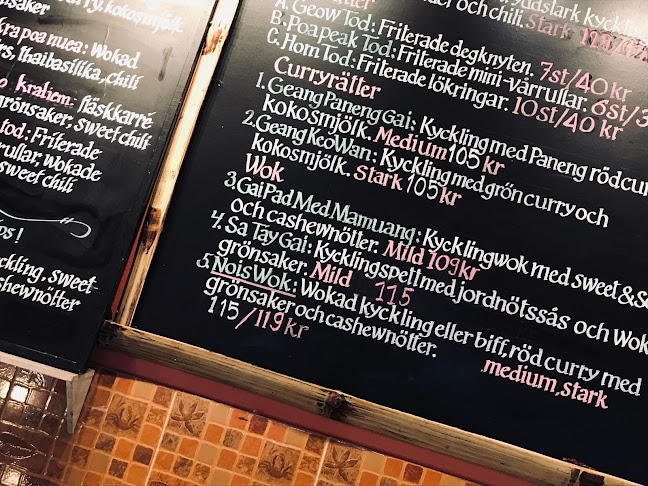 curry, kokosmjölk.
nsaker
kra poa nuea: Wokad
rs, thaibasilika, chili
o kraliem: fläskkarré
grönsaker, sweet chili
tod: Friterade
rullar, wokade
sweet chili
ps!
ckling, sweet-
ashewnötter
stark kyckling
och chili. Stark
A. Geow Tod: Friterade degknyten. 7st/40 kr
B. Poapeak Tod: Friterade mini-vårrullar. 6st/3
C. Hom Tod: Friterade lökringar. 10st/40 kr
Curryrätter
1. Geang Paneng Gai: Kyckling med Paneng röd cur
kokosmjölk. Medium 105 kr
2. Geang Keo Wan: Kyckling med grön curry och
kokosmjölk. Stark 105 kr
Wok
3. Gai Pad Med Mamuang: Kycklingwok med sweet & so
och cashewnötter. Mild 109 kr
4. Sa Tay Gai: Kycklingspett med jordnötssås och Wok
grönsaker. Mild 115
5. Nois Wok: Wokad kyckling eller biff, röd curry med
grönsaker och cashewnötter. medium, stark
115/119 kr